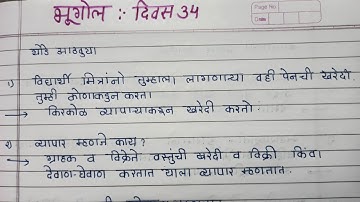 भूगोल :- दिवस 34
Page No
Date
थोडे आठवुया
१) विद्यार्थी मित्रांनो तुम्हाला लागणाऱ्या वही पेनची खरेदी
तुम्ही कोणाकडून करता
→ किरकोळ व्यापाऱ्याकडून खरेदी करतो.
२) व्यापार म्हणजे काय?
→ ग्राहक व विक्रेते वस्तुंची खरेदी व विक्री किंवा
देवाण-घेवाण करतात याला व्यापार म्हणतात.